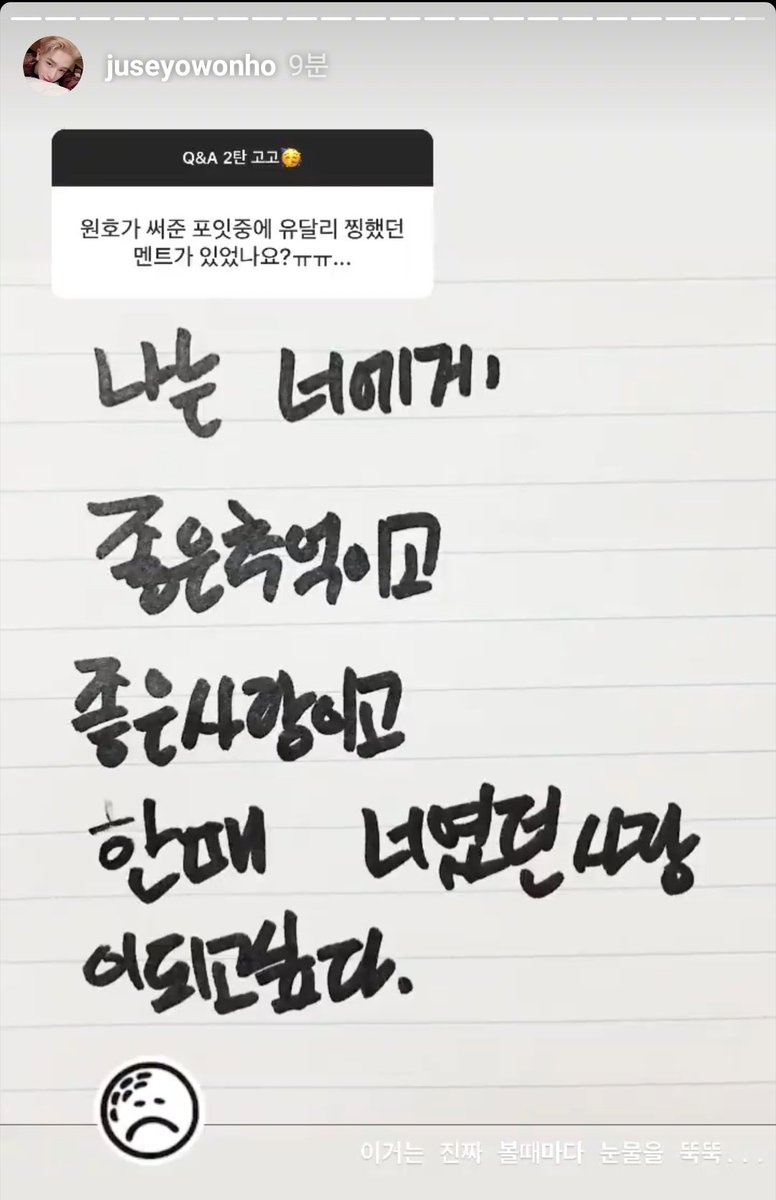 juseyowonho 9분
Q&A 2탄 고고🥳
원호가 써준 포잇중에 유달리 찡했던
멘트가 있었나요?ㅠㅠ...
나는 너에게
좋은추억이고
좋은사랑이고
한때 너였던사랑
이되고싶다.
이거는 진짜 볼때마다 눈물을 뚝뚝...